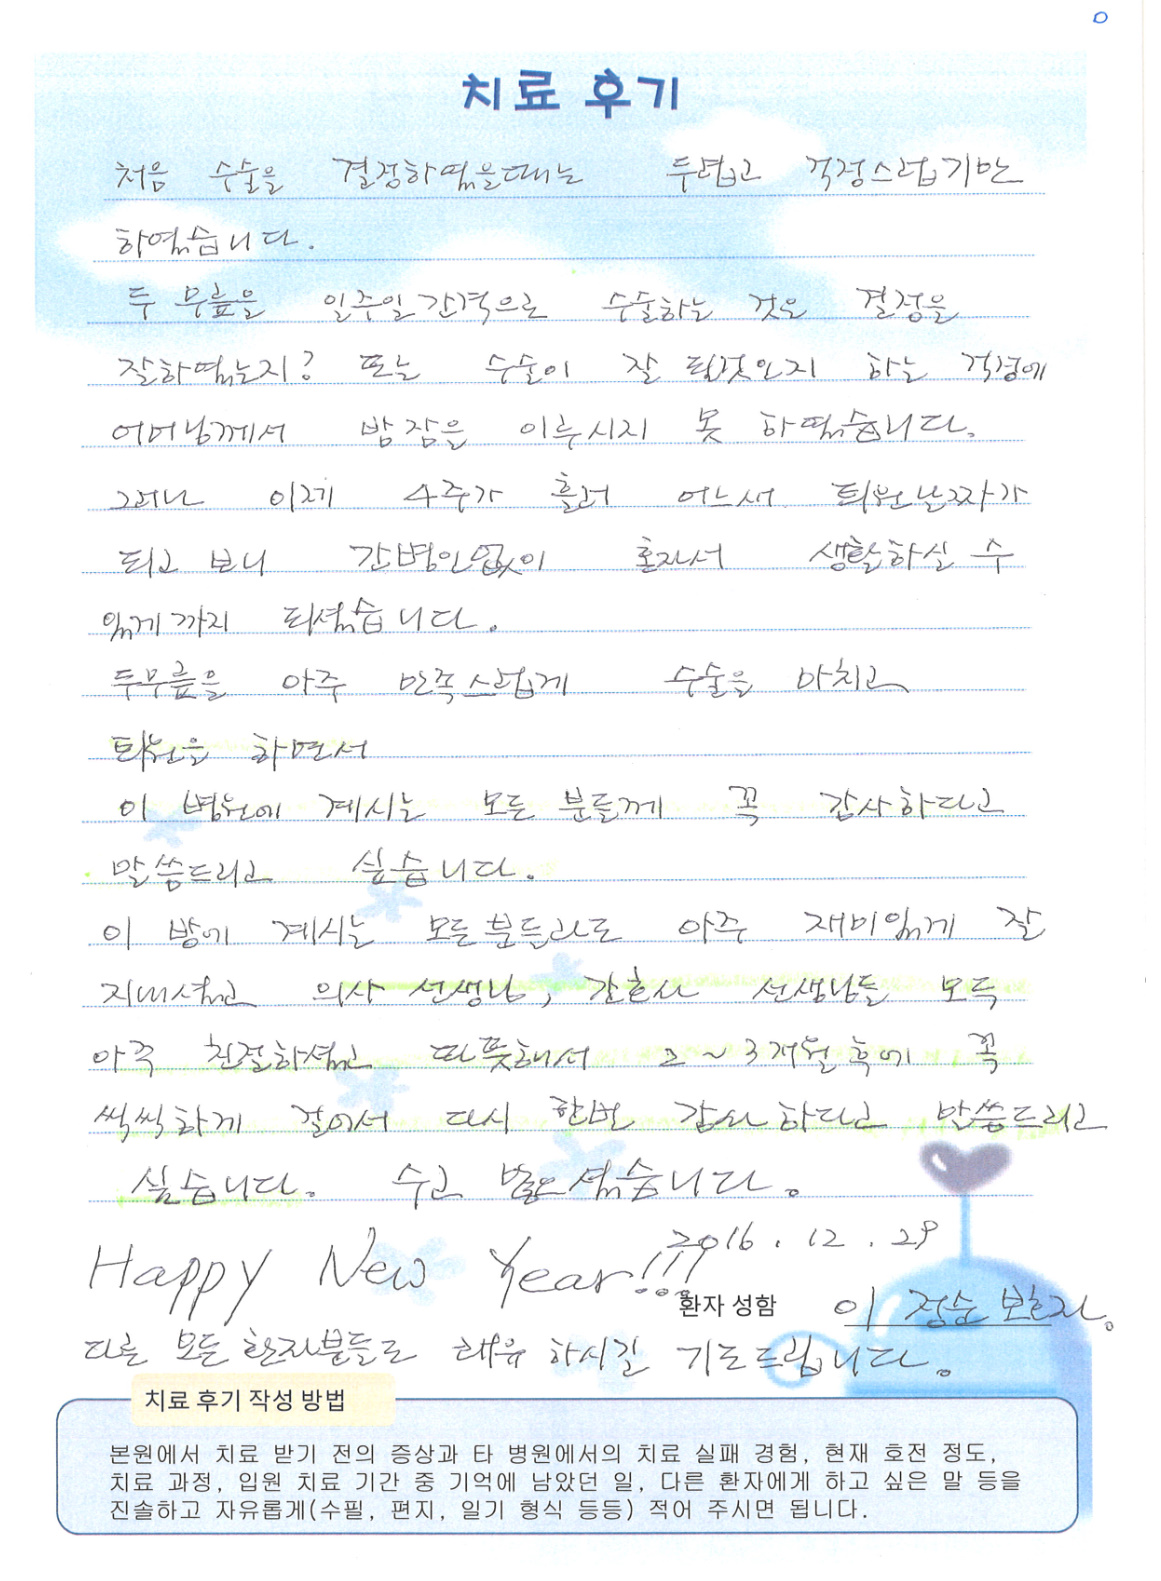 치료 후기
처음 수술을 결정하였을때는 두렵고 걱정스럽기만
하였습니다.
두 무릎을 일주일 간격으로 수술하는 것은 결정을
잘하였는지? 또는 수술이 잘 될것인지 하는 걱정에
어머님께서 밤잠을 이루시지 못 하였습니다.
그러나 이제 4주가 흘러 어느새 퇴원날짜가
되고 보니 간병인없이 혼자서 생활하실 수
있게 까지 되셨습니다.
두무릎을 아주 만족스럽게 수술을 마치고
퇴원을 하면서
이 병원에 계시는 모든 분들께 꼭 감사하다고
말씀드리고 싶습니다.
이 방에 계시는 모든분들과도 아주 재미있게 잘
지내셨고 의사 선생님, 간호사 선생님들 모두
아주 친절하셨고 따뜻해서 2~3개월후에 꼭
씩씩하게 걸어서 다시 한번 감사하다고 말씀드리고
싶습니다. 수고 많으셨습니다.
2016. 12. 29
Happy New Year!!!
환자 성함 이 정순 보호자.
다른 모든 환자분들도 쾌유 하시길 기도드립니다.
치료 후기 작성 방법
본원에서 치료 받기 전의 증상과 타 병원에서의 치료 실패 경험, 현재 호전 정도,
치료 과정, 입원 치료 기간 중 기억에 남았던 일, 다른 환자에게 하고 싶은 말 등을
진솔하고 자유롭게(수필, 편지, 일기 형식 등등) 적어 주시면 됩니다.